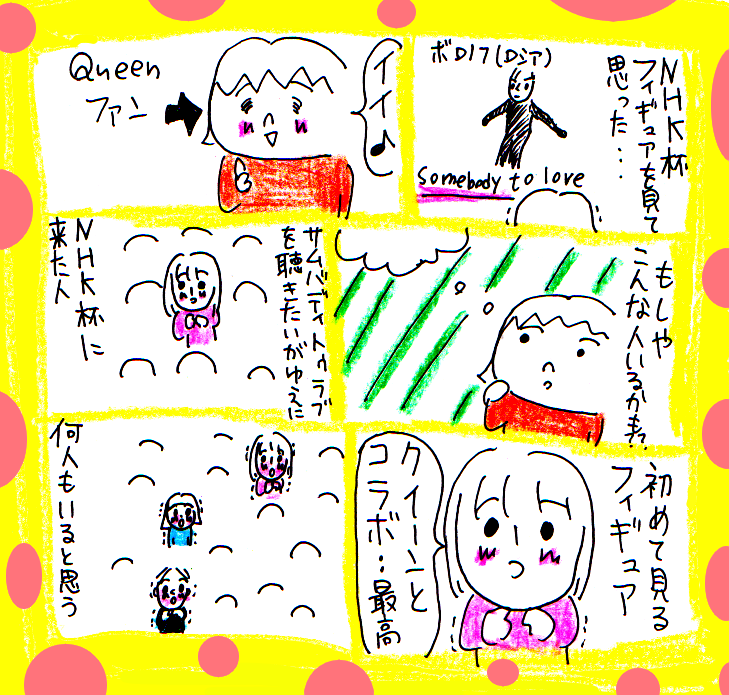 NHK杯
フィギュアを見て
思った・・・
ボロノフ(ロシア)
Somebody to love
イイ♪
Queen
ファン
もしや
こんな人いるかも!?
サムバディトゥラブ
を聴きたいがゆえに
NHK杯に
来た人
初めて見る
フィギュア
クイーンと
コラボ・・最高
何人もいると思う